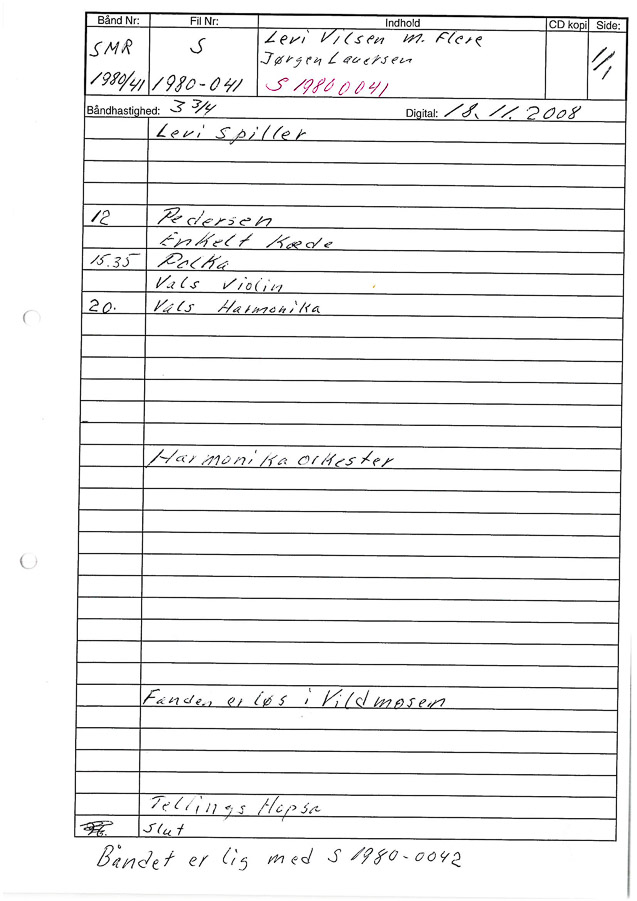 Bånd Nr: Fil Nr: Indhold CD kopi Side:
SMR S Levi Vilsen m. Flere 1/1
Jørgen Lauersen
1980/41 1980-041 S 1980 0041
Båndhastighed: 3 3/4 Digital: 18. 11. 2008
Levi Spiller
12 Pedersen
Enkelt Kæde
15.35 Polka
Vals Violin
20. Vals Harmonika
Harmonika orkester
Fanden er løs i Vildmosen
Tellings Hopsa
Slut
Båndet er lig med S 1980-0042